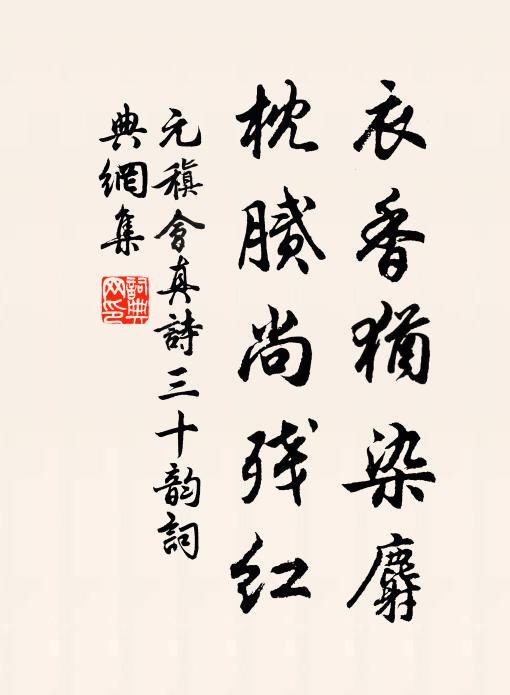 衣香猶染麝
枕膩尚残红
元稹會真詩三十韵詞
典網集
詞典网印